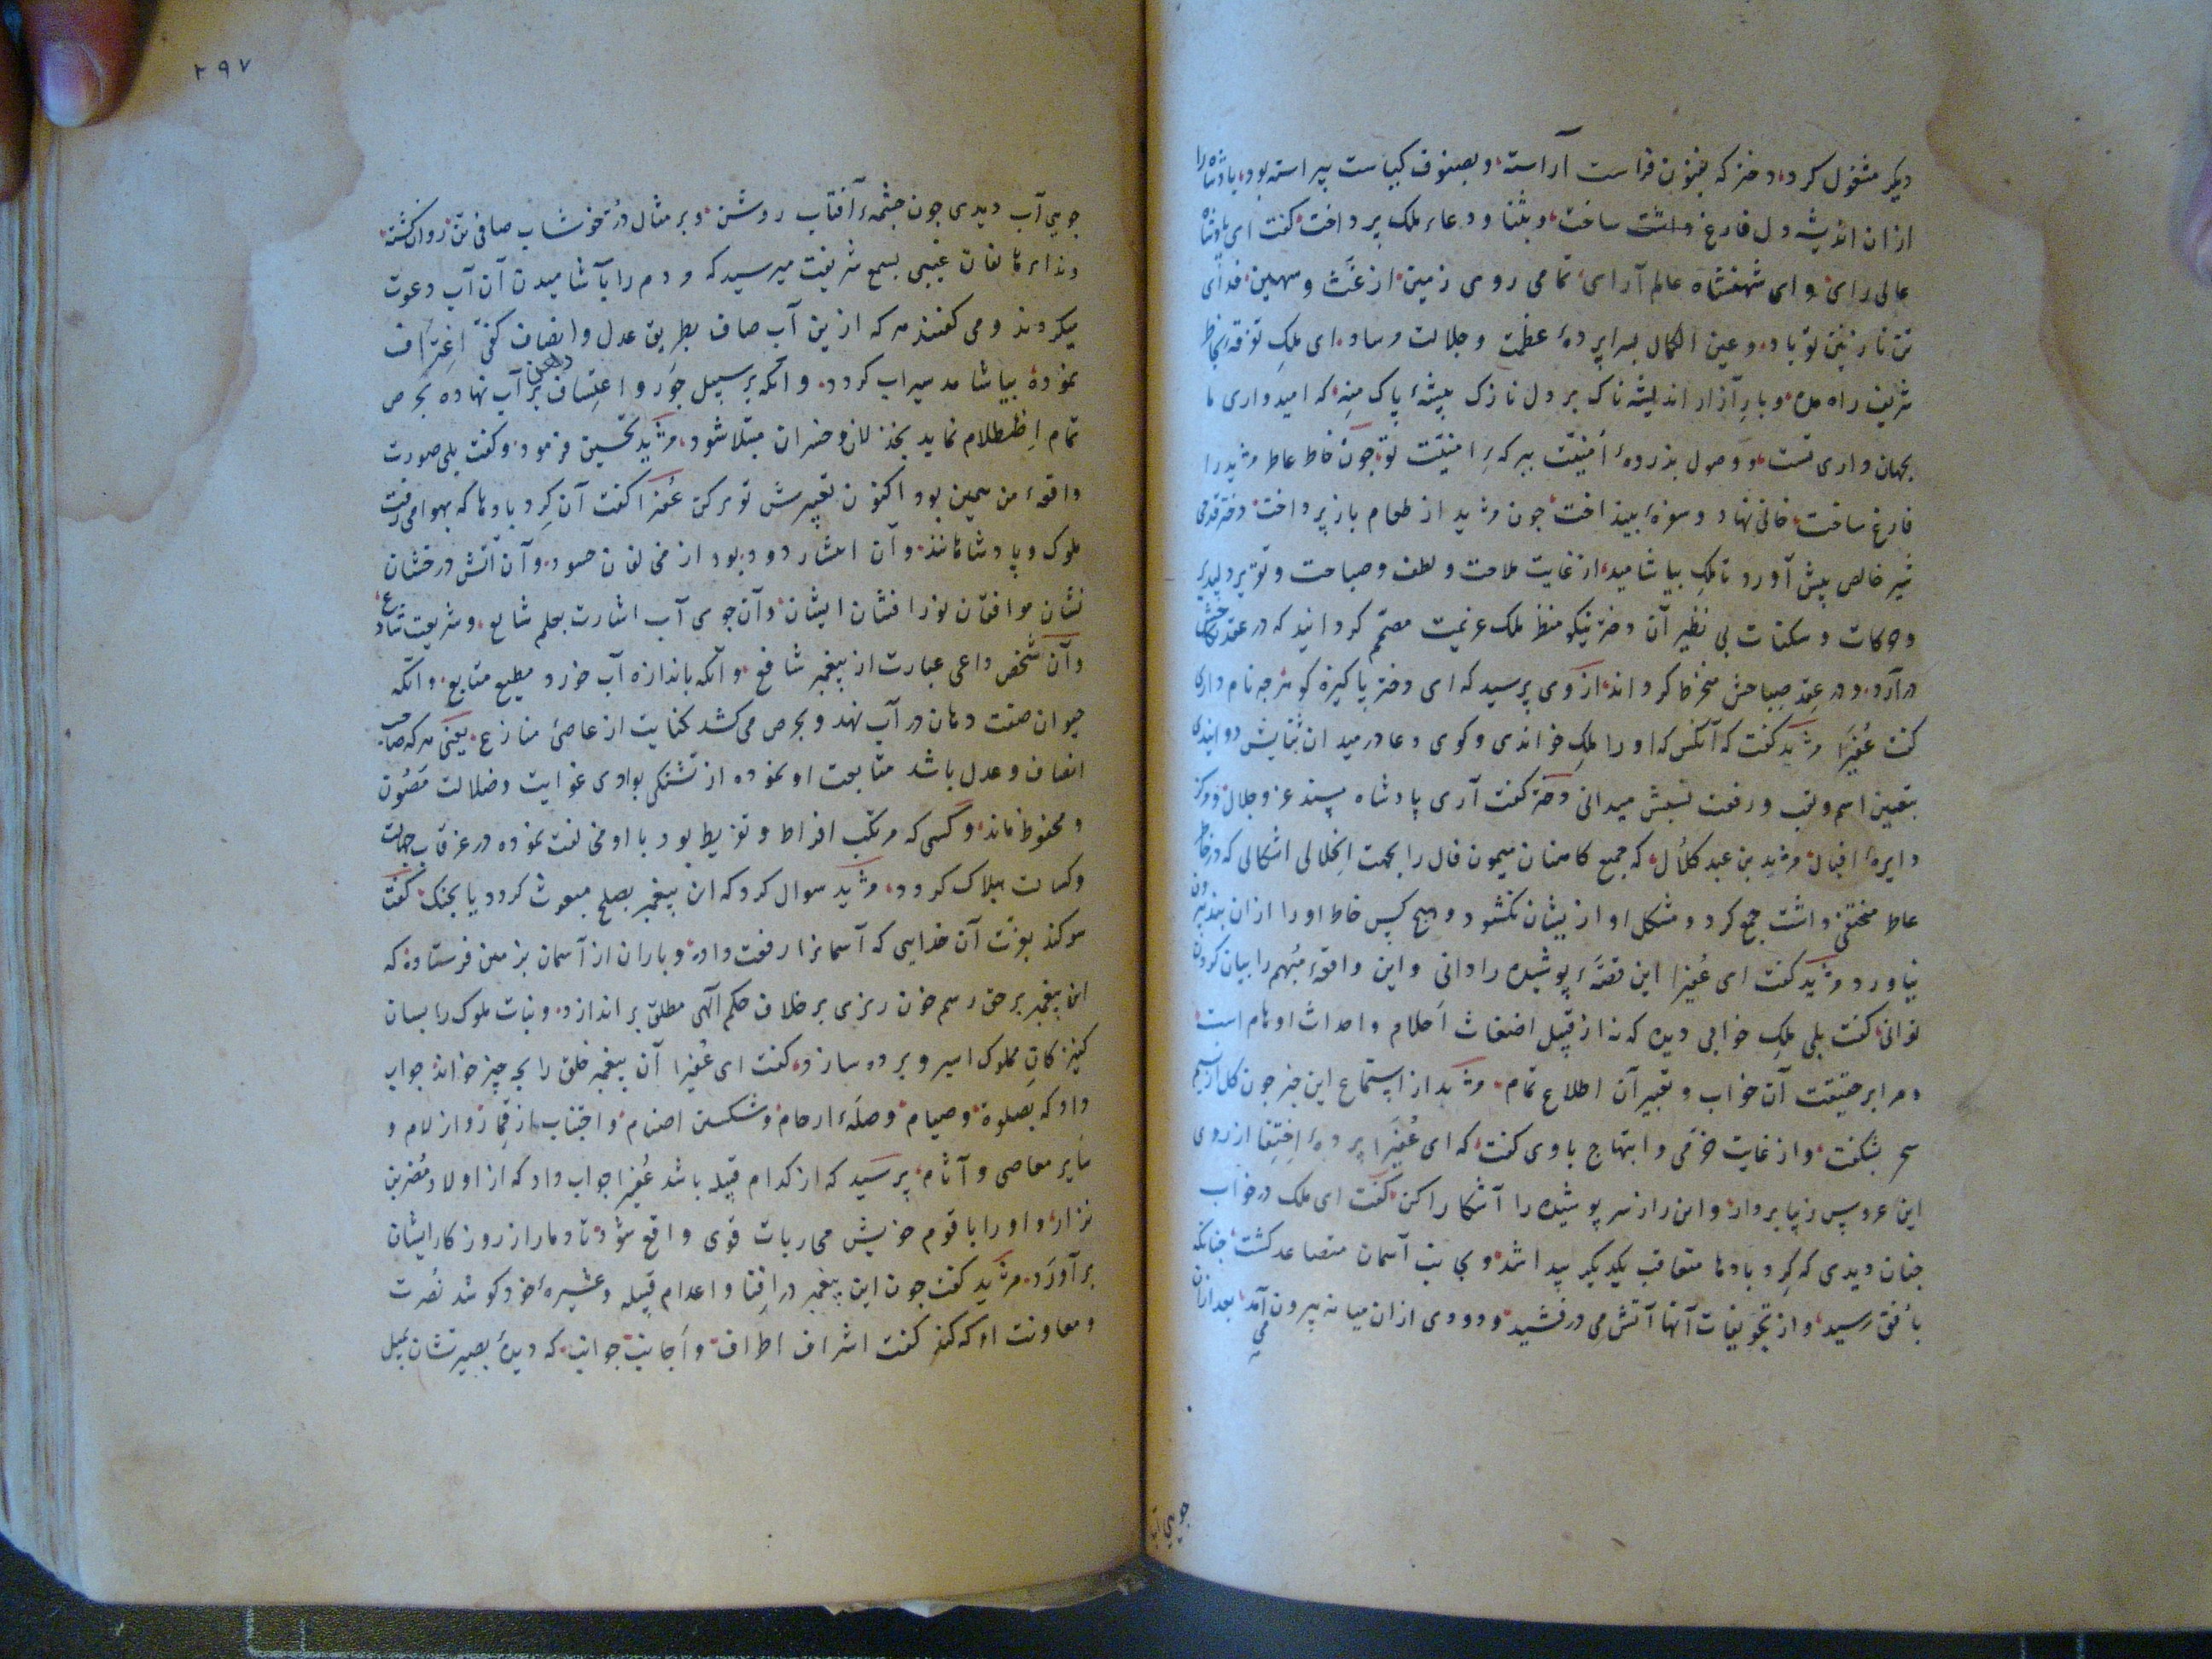 دیکر مشغول کرد، دختر که بفنون فراست آراسته، و بصنوف کیاست پیراسته بود، پادشاه را
ازان اندیشه دل فارغ داشت ساخت، و بثنا و دعاء ملک پرداخت، کفت ای پادشاه
عالی رای، و ای شهنشاه عالم آرای، تمامی روی زمین، از غث و سمین، فدای
تن نازنین تو باد، و عین الکمال بسراپردهٔ عظمت و جلالت مرساد، ای ملک تفرقه بخاطر
شریف راه مده، و بار آزار اندیشه ناک بر دل نازک بیشهٔ پاک منه، که امیدواری ما
بجهان داری تست، و وصول بذروهٔ امنیت ببرکه امنیت تو، جون خاطر عاطر مرثد را
فارغ ساخت، خانی نهاد و سفرهٔ بینداخت، جون مرثد از طعام بازپرداخت، دختر قدحی
شیر خالص پیش آورد تا ملک بیاشامید، از غایت ملاحت و لطف و صباحت و تقریر دلپذیر
و حرکات و سکنات بی نظیر آن دختر نیکو منظر ملک عزیمت مصمّم کردانید که در عقد نکاحش
درآرد، و در عقد صباحش منخرط کرداند، ازوی پرسید که ای دختر پاکیزه کوهر جه نام داری
کفت عُفَیرا مرثد کفت که آنکس که او را ملک خواندی و کوی دعا در میدان ثنایش دوانیدی
بتعیین اسم و لقب و رفعت نسبش میدانی دختر کفت آری پادشاه مسند عز و جلال، و مرکز
دایرهٔ اقبال، مرثد بن عبد کلال، که جمیع کاهنان میمون فال را بجهت انحلالی اشکالی که در خاطر
عاطر مختفی داشت جمع کرد و مشکل او ازیشان نکشود و هیچ کس خاطر او را ازان بند بیرون
نیاورد مرثد کفت ای عُفیرا این قصّهٔ پوشیده را دانی و این واقعهٔ مُبهم را بیان کردن
توانی، کفت بلی ملک خوابی دیده که نه از قبیل اضغاث احلام و احداث اوهام است،
و مرا بر حقیقت آن خواب و تعبیر آن اطلاع تمام، مرثد از استماع این خبر جون کل از نسیم
سحر بشکفت، و از غایت خرمی و ابتهاج با وی کفت، که ای عُفیرا پردهٔ اختفا از روی
این عروس زیبا بردار، و این راز سر پوشیده را آشکارا کن، کفت ای ملک در خواب
جنان دیدی که کرد بادها متعاقب یکدیکر پیدا شد، و بجانب آسمان متصاعد کشت، جنانکه
بافق رسید، و از تجویفات آنها آتش می درخشید، و دودی ازان میانه بیرون می آمد، بعد ازان
جویی آب
۲۹۷
جویی آب دیدی جون جشمهٔ آفتاب روشن، و بر مثال دُرّ خوشاب صافی تن، روان کشته،
و نداء هاتفان غیبی بسمع شریفت میرسید که مردم را بآشامیدن آن آب دعوت
میکردند و می کفتند هر که ازین آب صاف بطریق عدل و انصاف کفی اغتراف
نموده بیاشامد سیراب کردد، و انکه بر سبیل جَور و اعتساف دهن بر آب نهاده بحرص
تمام اظطلام نماید بخذلان و خسران مبتلا شود، مرثد تحسین فرمود، و کفت بلی صورت
واقعهٔ من همین بود اکنون تعبیرش تو بر کن عُفیرا کفت آن کرد بادها که بهوا می رفت
ملوک و پادشاهانند، و آن انتشار دود، بود از مخالفان حسود، و آن آتش درخشان
نشان موافقان نور افشان ایشان، و آن جوی آب اشارت بعلم شایع، و شریعت شارع،
و آن شخص داعی عبارت از پیغمبر شافع، و آنکه باندازه آب خورد مطیع متابع، و انکه
حیوان صفت دهان در آب نهد و بحرص می کشد کنایت از عاصی منازع، یعنی هر که صاحب
انصاف و عدل باشد متابعت او نموده از تشنکی بوادی غوایت و ضلالت مَصُون
و محفوظ ماند، و کسی که مرتکب افراط و تفریط بود با او مخالفت نموده در غرقاب جهالت
و کسالت هلاک کردد، مرثد سوال کرد که ان پیغمبر بصلح مبعوث کردد یا بجنک، کفتا
سوکند بعزت آن خدایی که آسمانرا رفعت داده، و باران از آسمان بزمین فرستاده، که
این پیغمبر برحق رسم خون ریزی بر خلاف حکم الهی مطلق براندازد، و بنات ملوک را بسان
کنیزکان مملوک اسیر و برده سازد، کفت ای عُفیرا آن پیغمبر خلق را بجه چیز خواند جواب
داد که بصلوة، و صیام، و صلهٔ ارحام، و شکستن اصنام، و اجتناب از قمار، و ازلام و
سایر معاصی و آثام، پرسید که از کدام قبیله باشد عُفیرا جواب داد که از اولاد مُضر بن
نزار، و او را با قوم خویش محاربات قوی واقع شود، تا دمار از روزکار ایشان
برآورد، مرثد کفت جون این پیغمبر در افنا و اعدام قبیله و عشیرهٔ خود کوشد نُصرت
و معاونت او که کند کفت اشراف اطراف، و اجانب جوانب، که دیدهٔ بصیرتشان بمیل